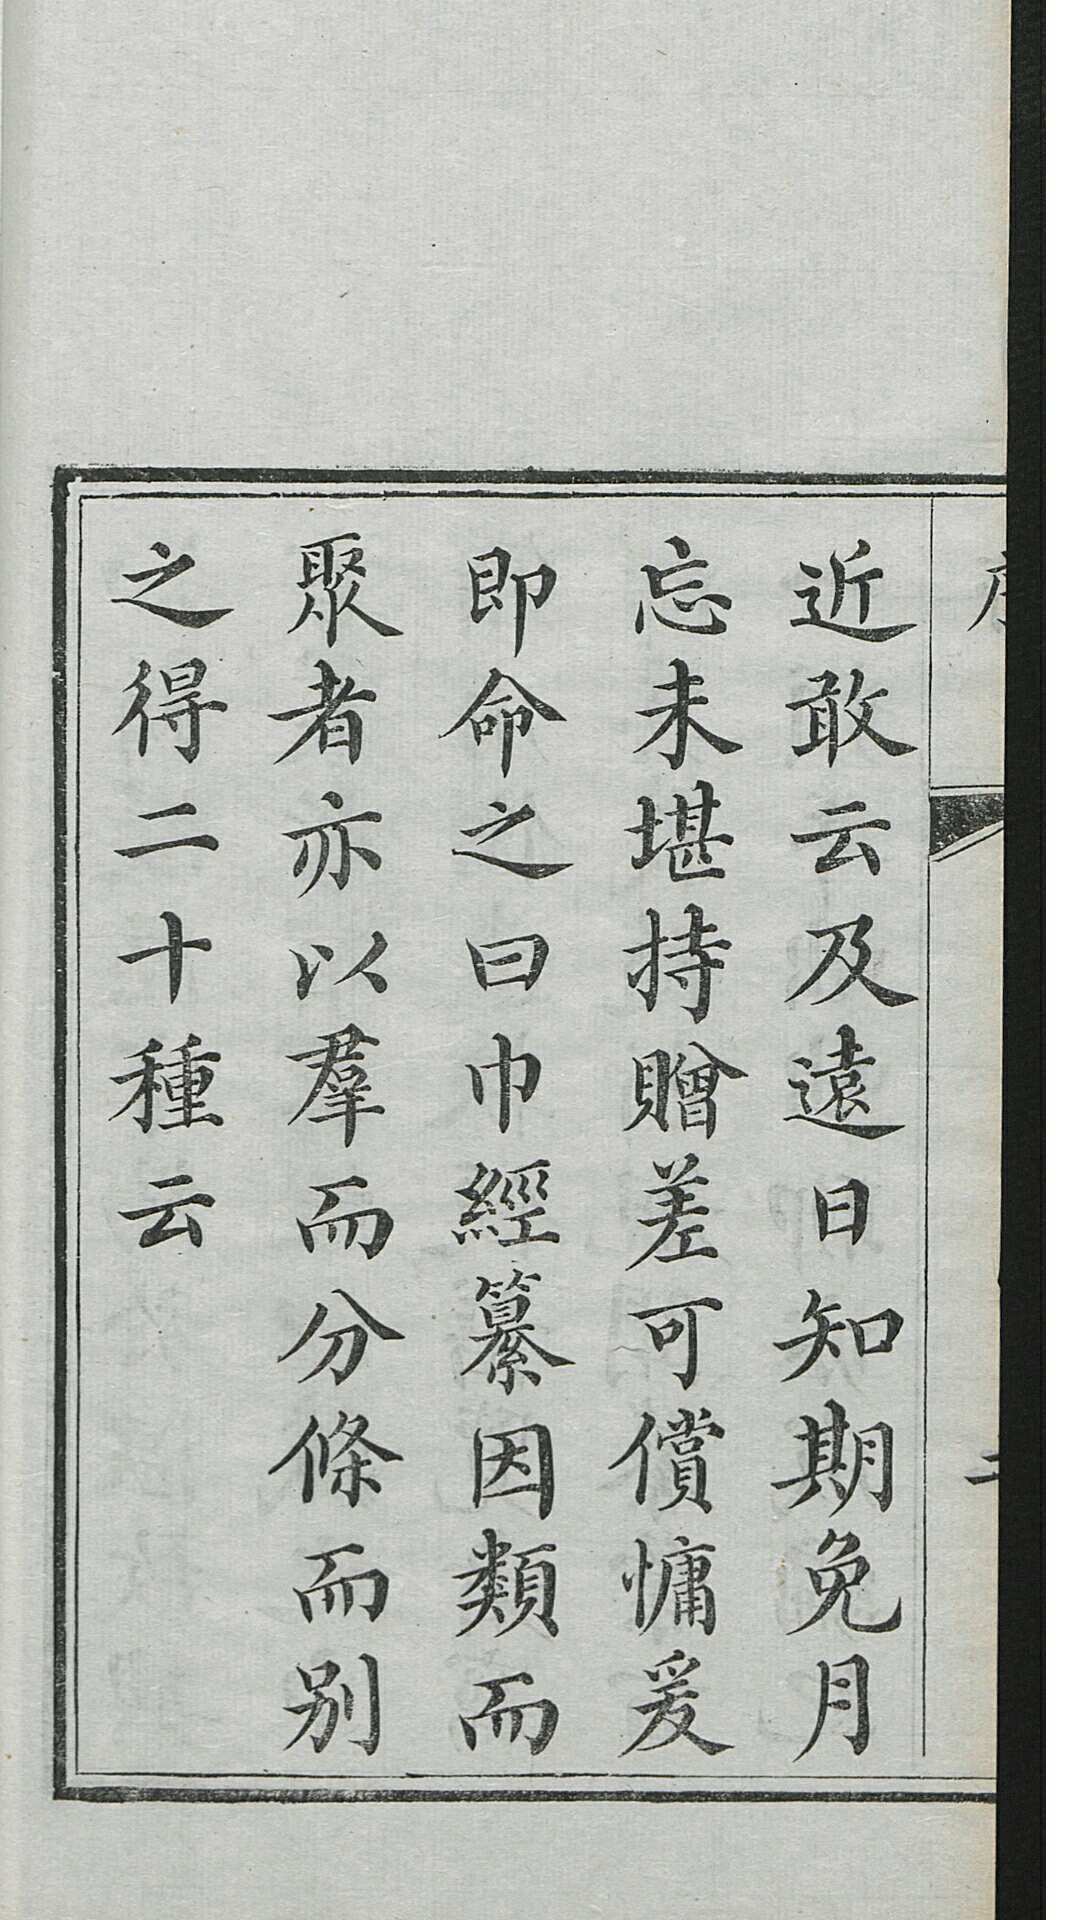 近敢云及遠日知期免月
忘未堪持贈差可償慵爰
即命之曰巾經纂因類而
聚者亦以羣而分條而別
之得二十種云